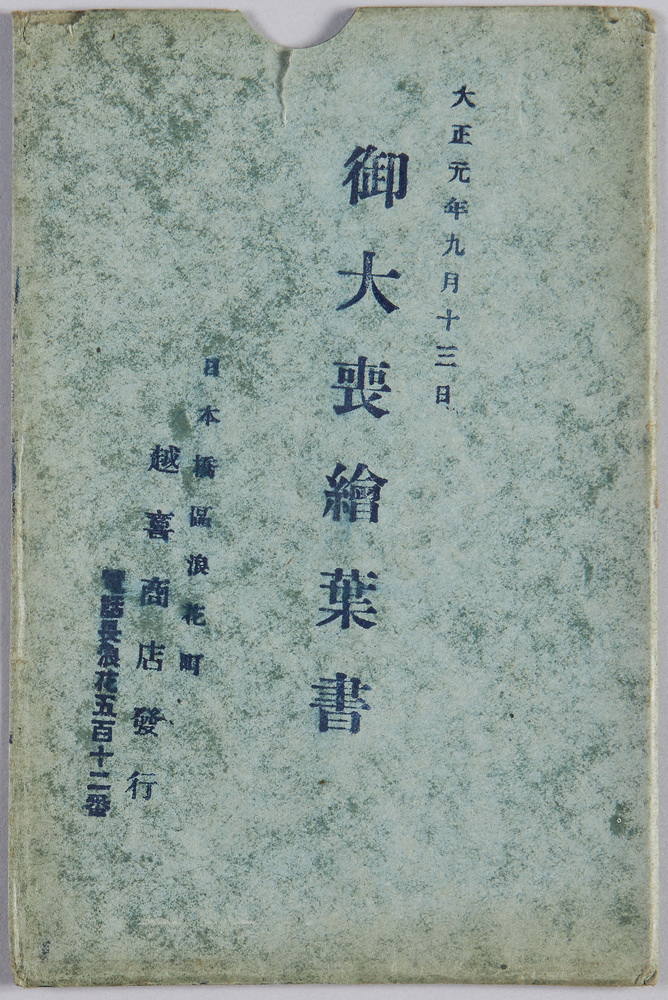 大正元年九月十三日
御大喪繪葉書
日本橋區浪花町
越喜商店發行
電話長浪花五百十二番